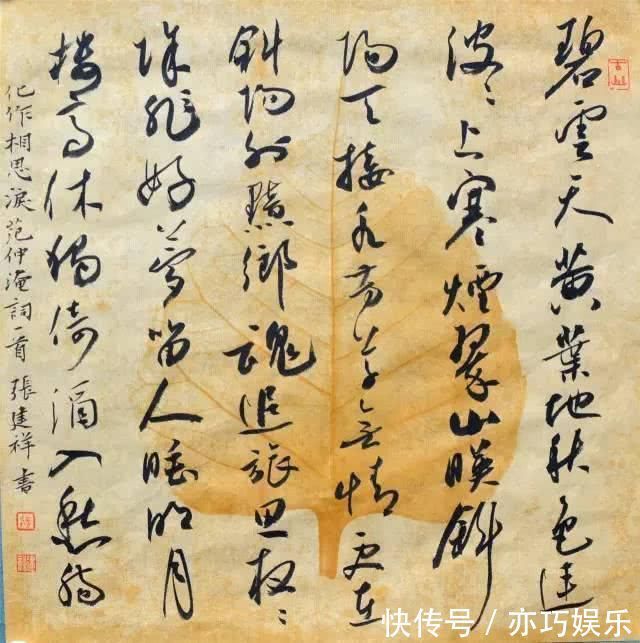 碧雲天黄葉地秋色連
波〻上寒煙翠山暎斜
陽天接水芳草無情更在
斜陽外黯鄉魂追旅思夜〻
除非好夢留人睡明月
樓高休獨倚酒入愁腸
化作相思淚范仲淹詞一首 張建祥書
快传号 / 亦巧娱乐